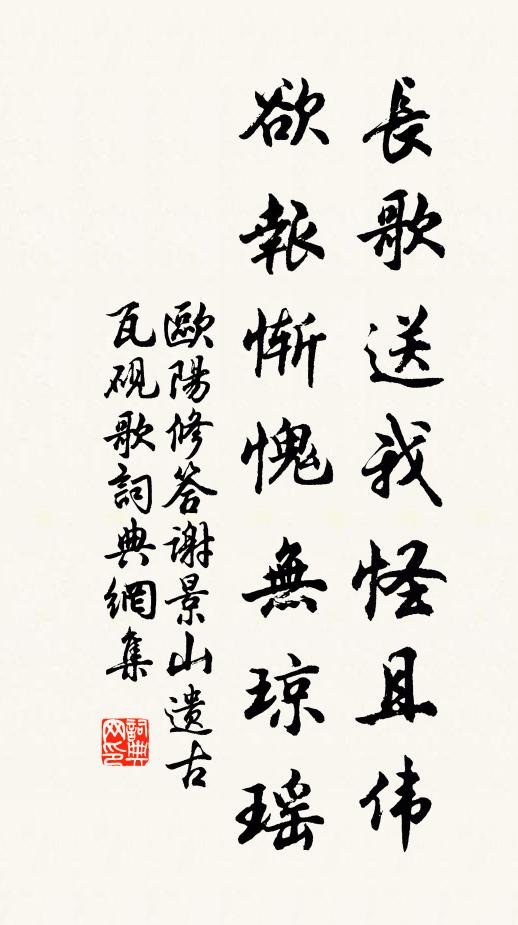 長歌送我怪且伟
欲報慚愧無琼瑶
歐陽修答谢景山遗古
瓦硯歌詞典網集
詞典网印